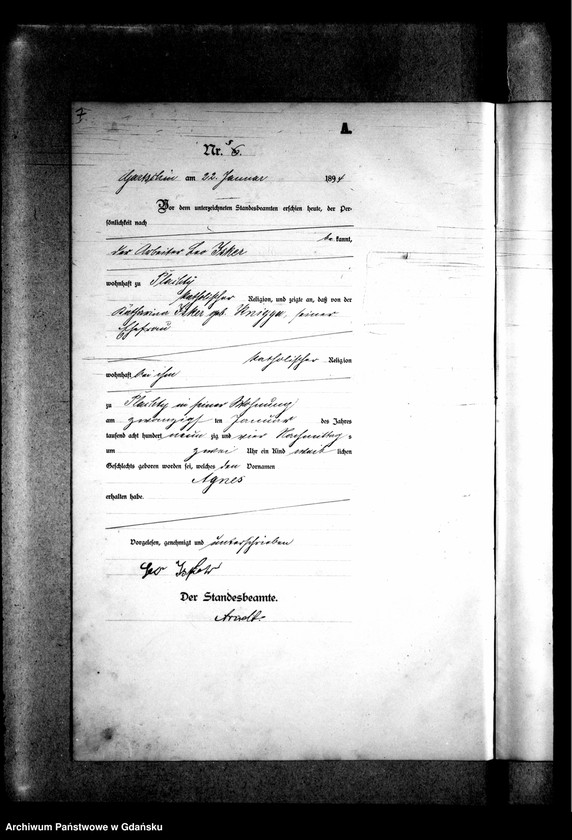 7
A.
Nr. 5
am 22. Januar 1894
Vor dem unterzeichneten Standesbeamten erschien heute, der Per-
sönlichkeit nach
be kannt,
der Arbeiter Leo
wohnhaft zu
katholischer Religion, und zeigte an, daß von der
Katharina geb. Knigga, seiner
Ehefrau
katholischer Religion
wohnhaft bei ihm
zu in seiner Wohnung
am zwanzigsten Januar des Jahres
tausend acht hundert neun zig und vier Nachmittags
um zwei Uhr ein Kind weib lichen
Geschlechts geboren worden sei, welches den Vornamen
Agnes
erhalten habe.
Vorgelesen, genehmigt und unterschrieben
Leo
Der Standesbeamte.
Arndt.
Archiwum Państwowe w Gdańsku